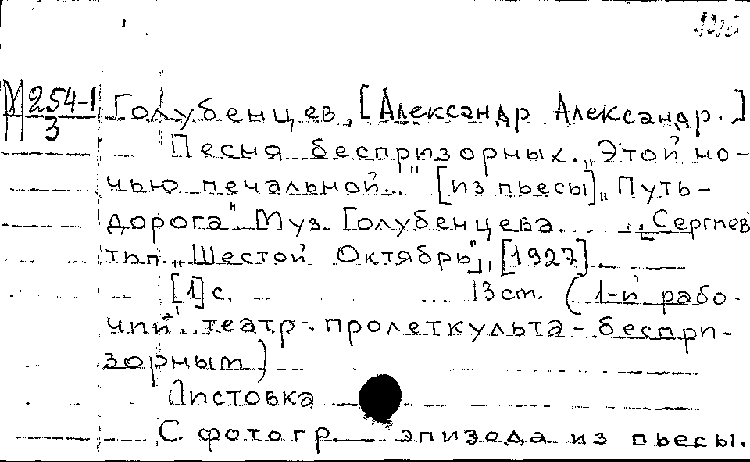 М 254-1/3
Голубенцев, [Александр Александр.]
Песня беспризорных. „Этой но-
чью печальной.." [из пьесы] „Путь-
дорога" Муз. Голубенцева. .. [Сергиев
тип. „Шестой Октябрь"], [1927].
[1] с. 13 cm. (1-й рабо-
чий театр пролеткульта - беспри-
зорным)
Листовка
С фотогр. эпизода из пьесы.